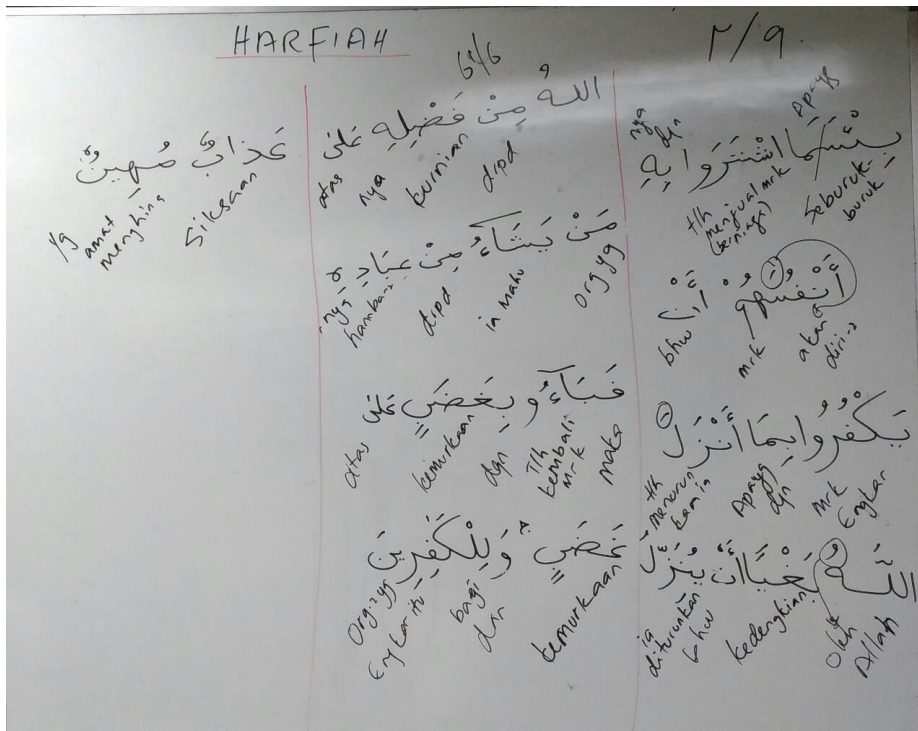 HARFIAH
٢/٩
6/6
بِئْسَمَا اشْتَرَوْا بِهِ
nya dgn tlh menjual mrk (berniaga) Apa yg Seburuk-buruk
أَنْفُسَهُمْ أَنْ
bhw mrk akan diri2
يَكْفُرُوا بِمَا أَنْزَلَ
tlh menurunkan ia Apa yg dgn mrk Engkar
اللَّهُ بَغْيًا أَنْ يُنَزِّلَ
ia diturunkan bhw kedengkian Oleh Allah
اللهُ مِنْ فَضْلِهِ عَلَى
atas nya kurnian dipd
مَنْ يَشَاءُ مِنْ عِبَادِهِ
nya hamba2 dipd ia mahu Org yg
فَبَاءُو بِغَضَبٍ عَلَى
atas kemurkaan dgn Tlh kembali mrk maka
غَضَبٍ وَلِلْكَفِرِينَ
Org2 yg Engkar itu bagi dan kemurkaan
عَذَابٌ مُهِينٌ
Yg amat menghina Siksaan